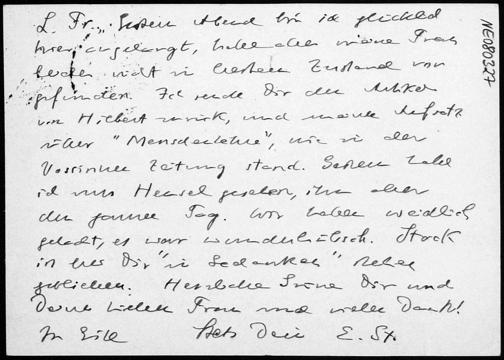 L. Fr., Gestern Abend bin ich glücklich
hier angelangt, habe aber meine Frau
leider nicht in bestem Zustand vor
gefunden. Ich sende Dir den Artikel
von Hilbert zurück, und meinen Aufsatz
über "Menschenkenntnis", wie in der
Vossischen Zeitung stand. Gestern habe
ich nur Hensel gesehen, ihn aber
den ganzen Tag. Wir haben weidlich
gelacht, es war wunderhübsch. Stock
ist bei Dir "in Gedanken" stehen
geblieben. Herzliche Grüsse Dir und
Deiner lieben Frau und vielen Dank!
In Eile Stets Dein E. St.
NE080327